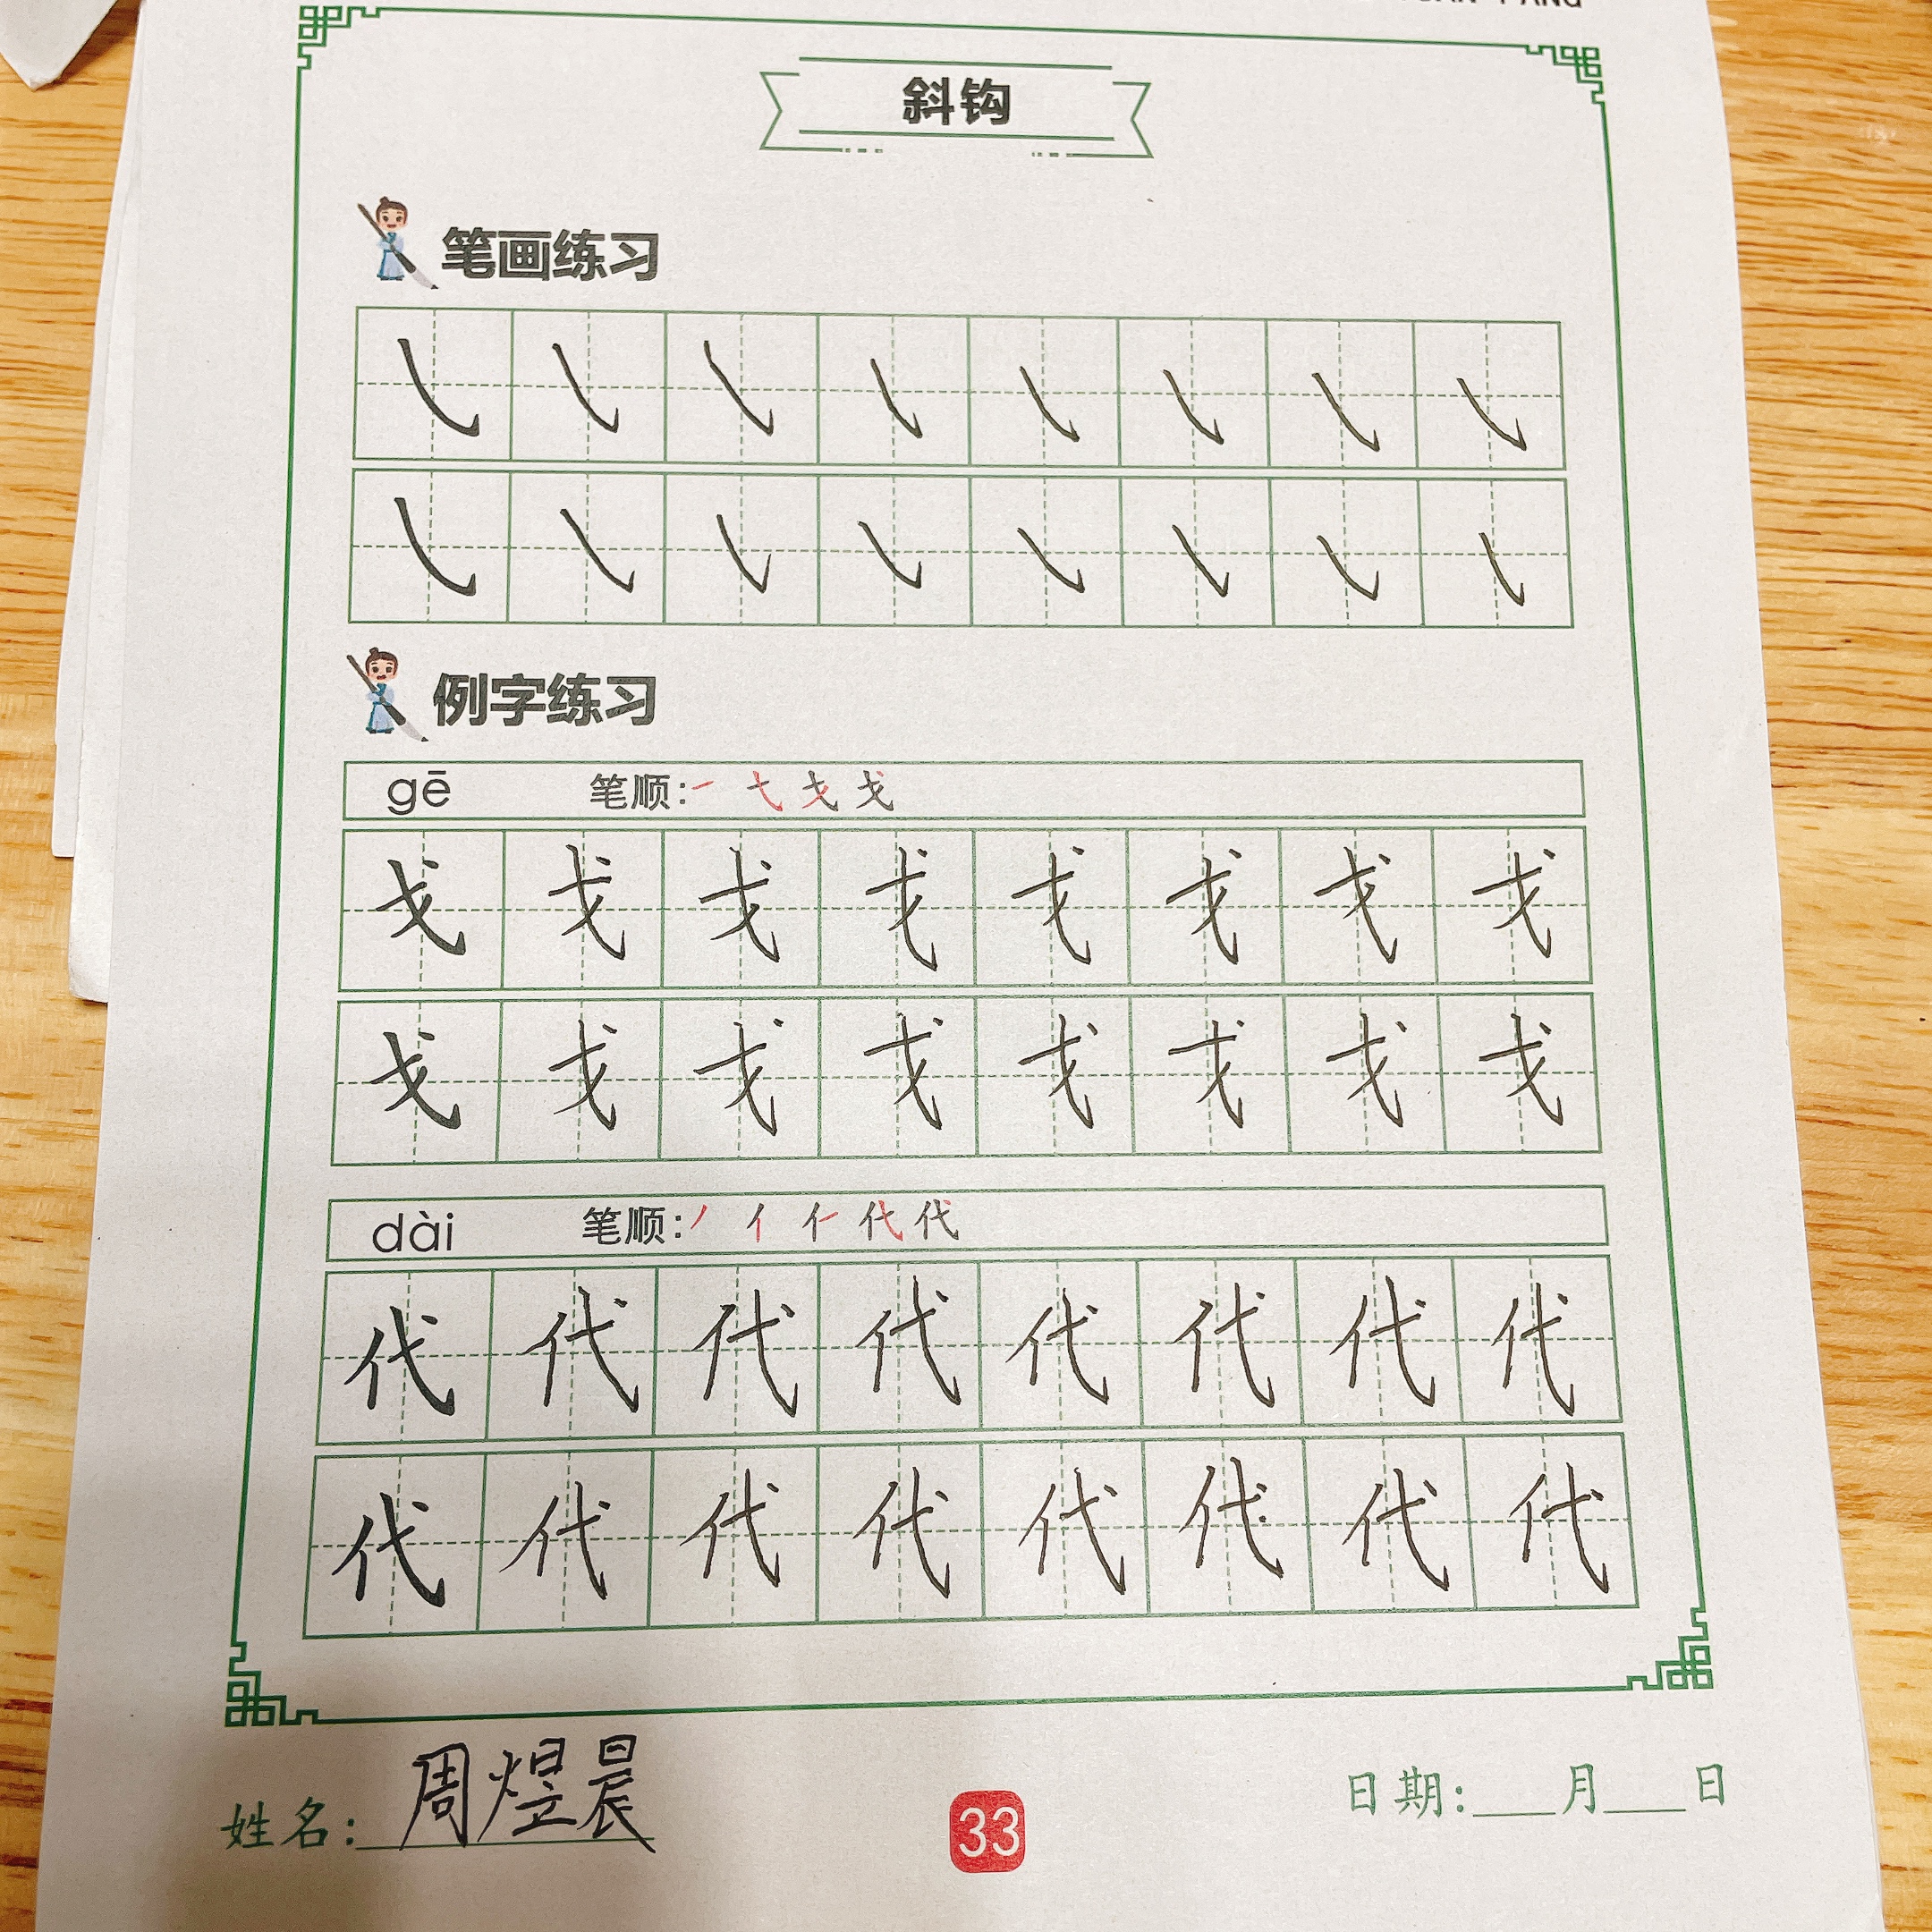 斜钩
笔画练习
例字练习
gē 笔顺:一 弋 戈 戈
戈 戈 戈 戈 戈 戈 戈 戈
戈 戈 戈 戈 戈 戈 戈 戈
dài 笔顺:丿 亻 仁 代 代
代 代 代 代 代 代 代 代
代 代 代 代 代 代 代 代
姓名:周煜晨
33
日期:___月___日